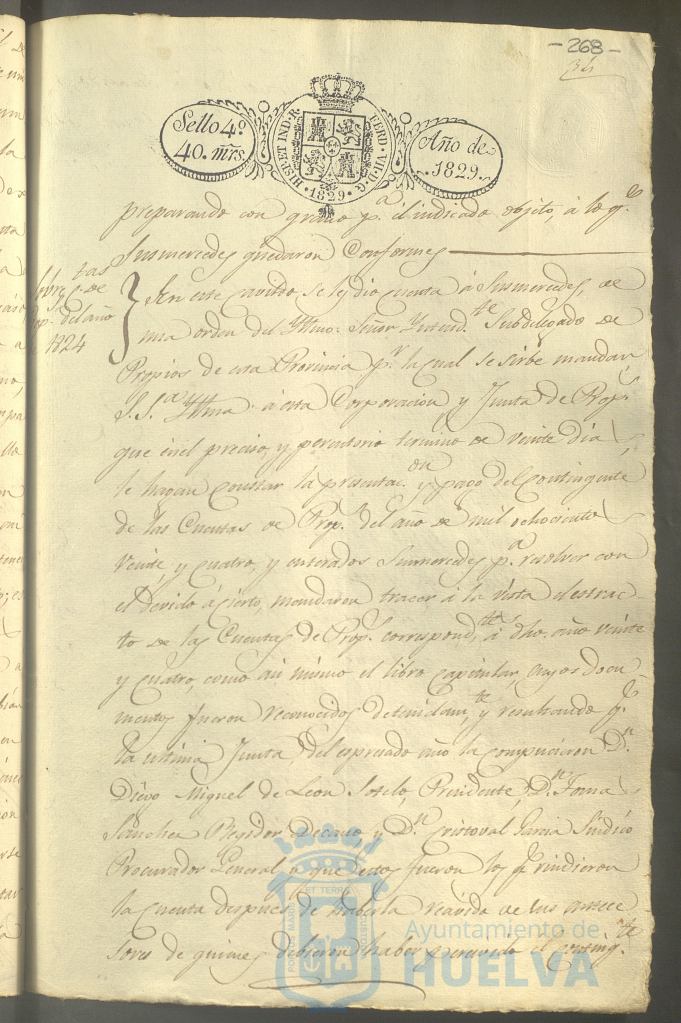 -268-
Sello 4º
40. mrs.
HISP. ET IND. R.
FERD. VII. D. G.
·1829·
Año de
1829.
preparando con gracia pª. el indicado objeto, á lo qº.
Susmercedes quedaron Conformes
Sobre Ctas
de
Prop. del año
de 1824
En este cavildo se les dio cuenta á Susmercedes, de
una orden del Yltmo. Señor Yntendte. Subdelegado de
Propios de esta Provincia pr. la cual se sirbe mandar
S. S.ª Yltma. á esta Corporacion, y Junta de Props.
que en el preciso, y perentorio termino de veinte dias
le hagan constar la presentacon. y pago del Contingente
de las Cuentas de Props. del año de mil ochocientos
veinte y cuatro, y enterados Susmercedes pª. resolver con
el devido ácierto, mandaron traer á la vista el estrac-
to de las Cuentas de Props. correspondtes. á dho. año veinte
y cuatro, como asi mismo el libro capitular, cuyos Docu
mentos fueron reconocidos detenidamte. y resultando qe.
la ultima Junta del espresado año la componian Dn.
Diego Miguel de Leon Sotelo, Presidente, Dn. Tomas
Sanchez Regidor Decano, y Dn. Cristoval Garcia Sindico
Procurador General, y que estos fueron los qe. rindieron
la cuenta despues de haberla recivido de sus antece
sores de quienes debieron haber percivido el contingte.
PORTUS MARIS ET TERRAE CUSTODIA
Ayuntamiento de
HUELVA